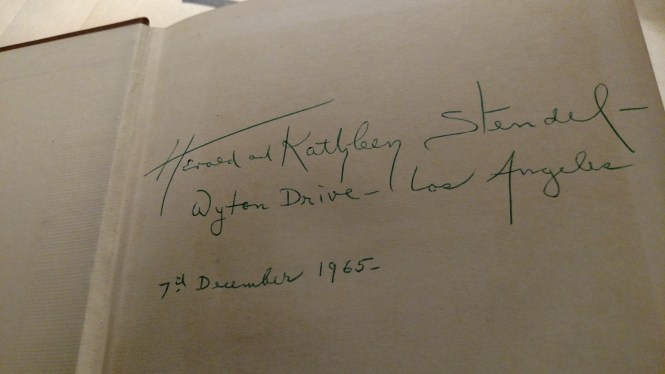 Harold and Kathleen Stendel -
Wyton Drive - Los Angeles
7d December 1965 -